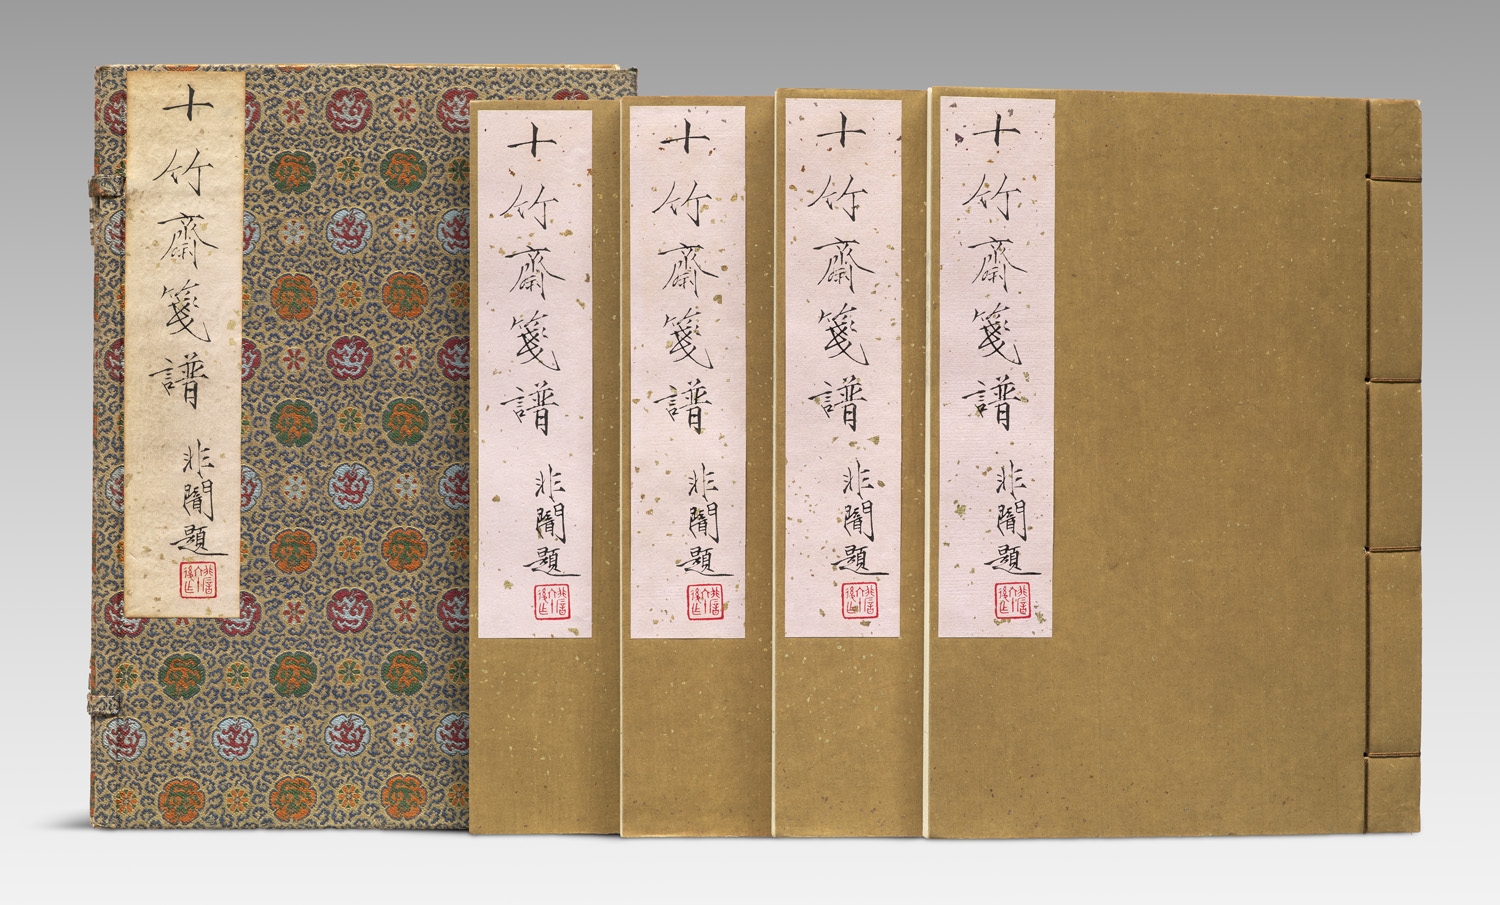 十竹齋箋譜
非闇題
十竹齋箋譜
非闇題
十竹齋箋譜
非闇題
十竹齋箋譜
非闇題
十竹齋箋譜
非闇題